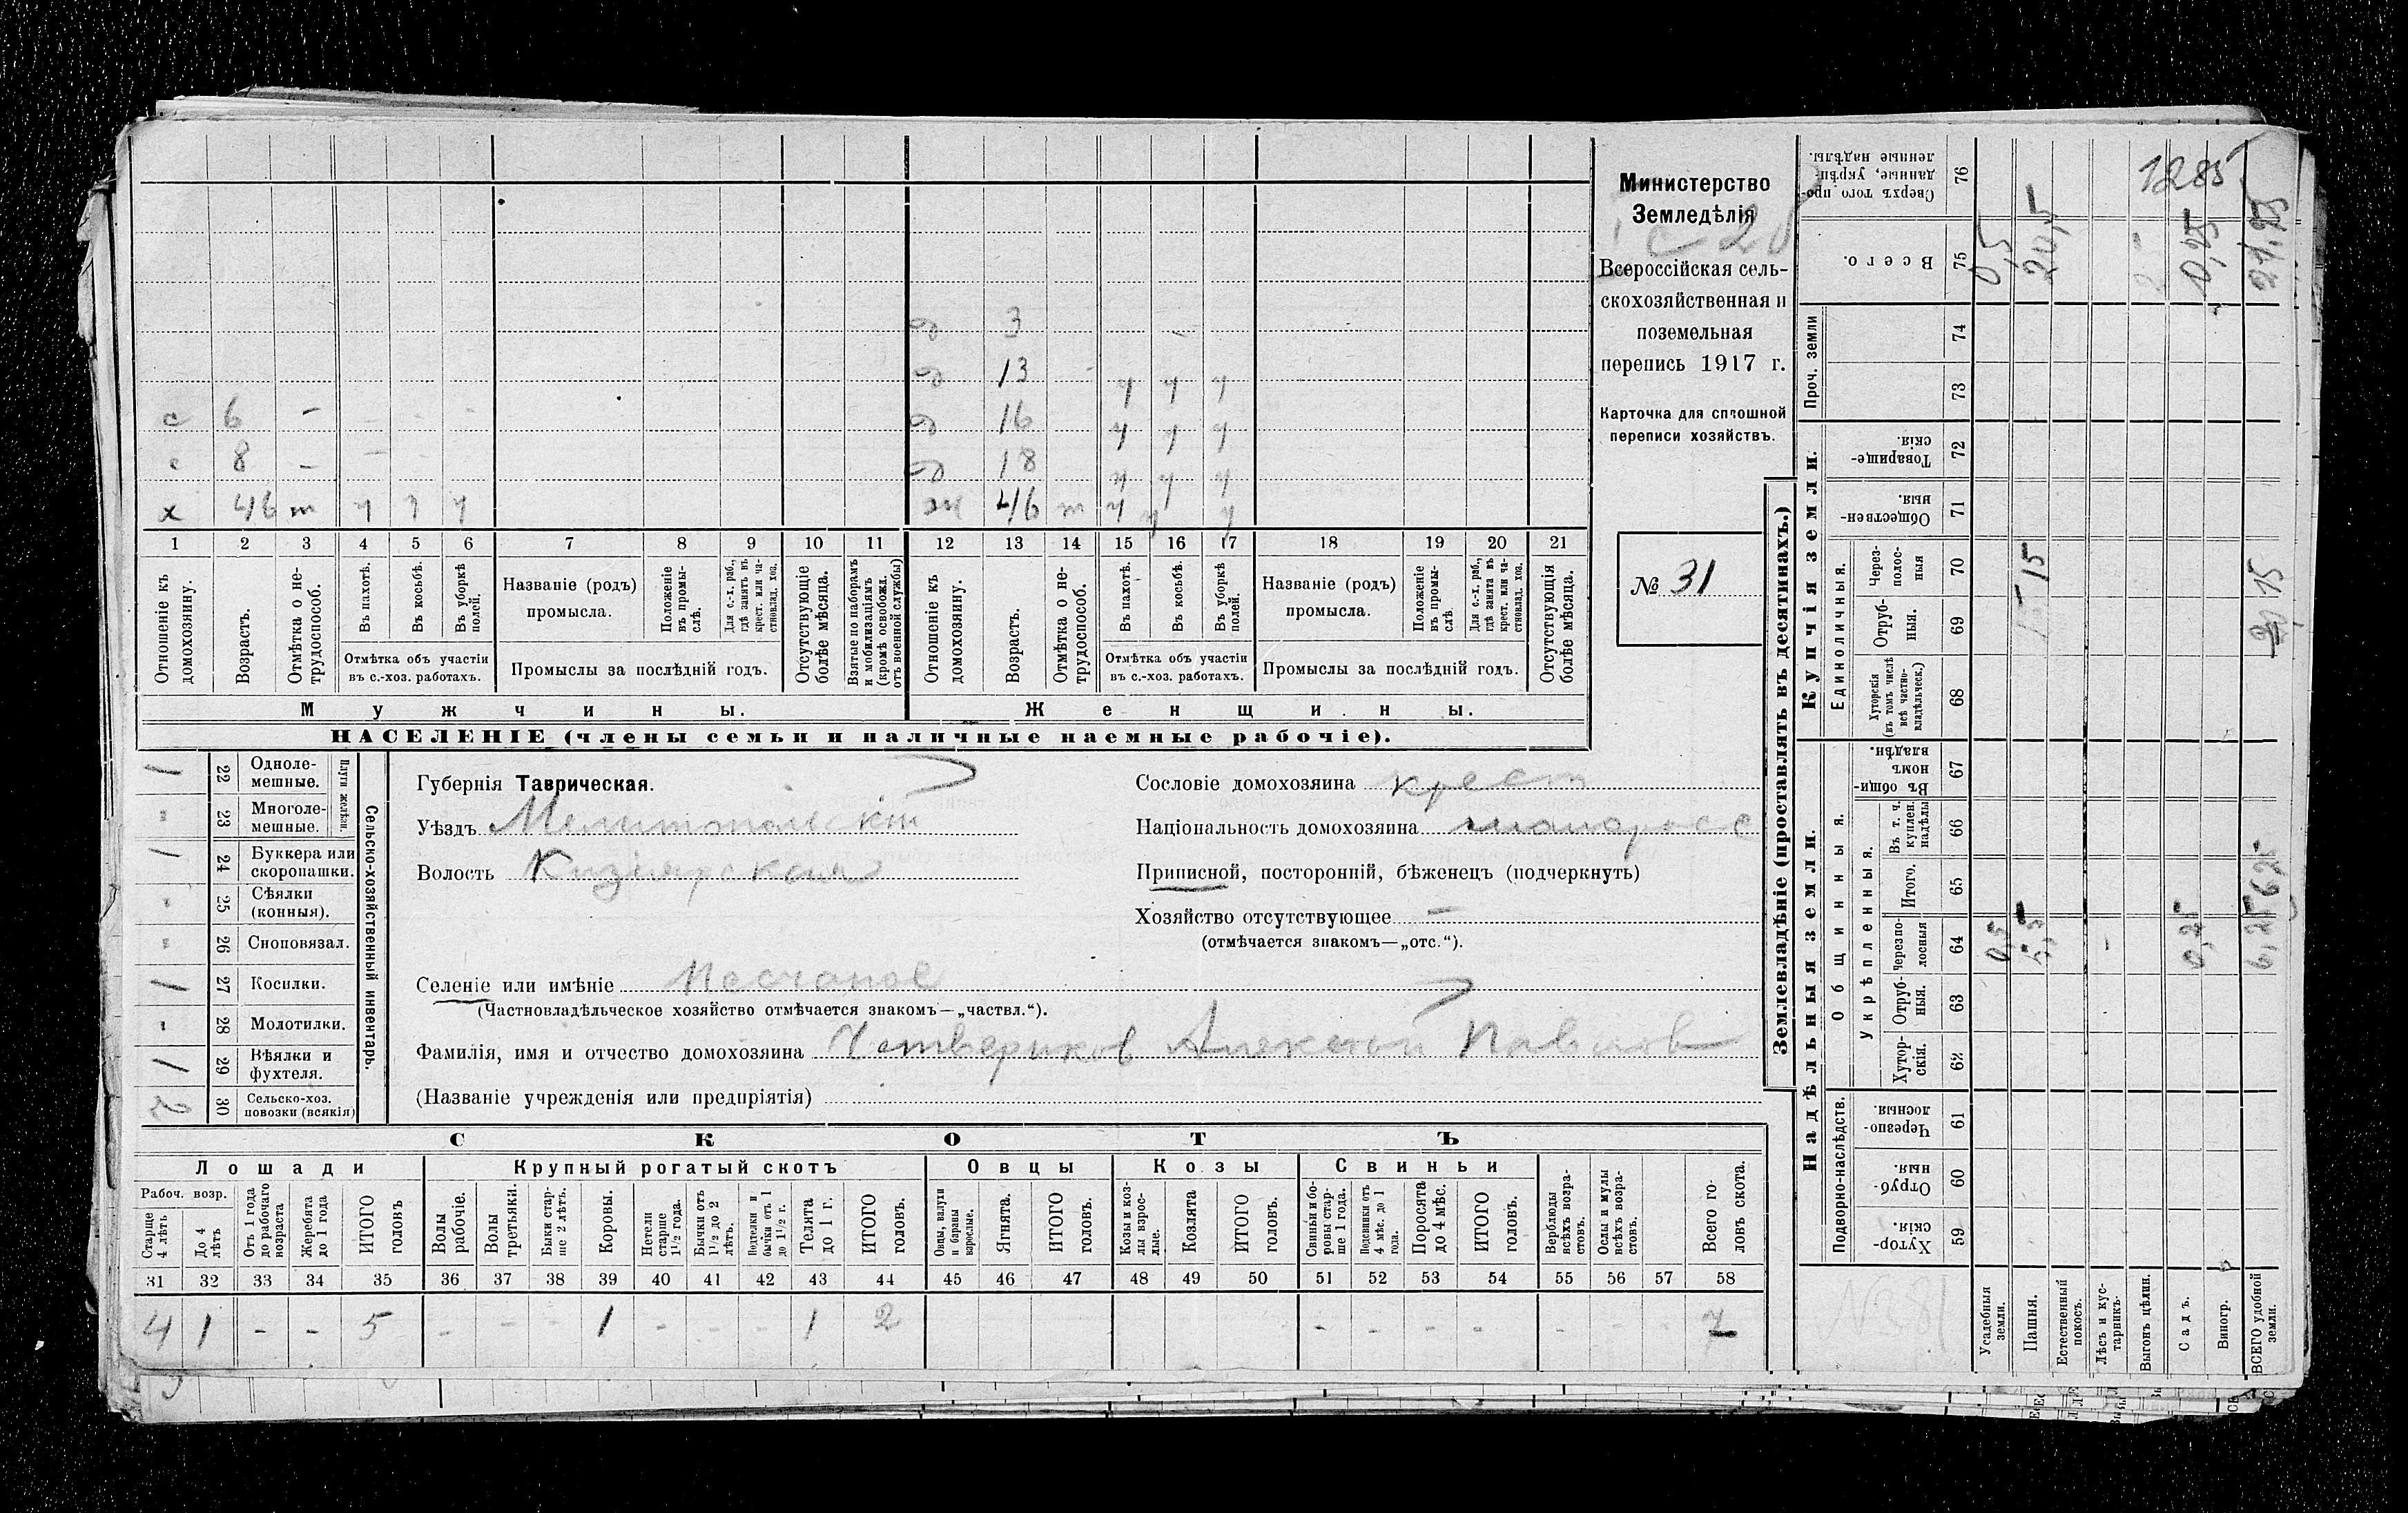 Министерство
Земледѣлія
Всероссійская сель-
скохозяйственная и
поземельная
перепись 1917 г.
Карточка для сплошной
переписи хозяйствъ.
№ 31
с 6 -
с 8 -
х 46 т ч ч ч
д 3
д 13 ч ч ч
д 16 ч ч ч
д 18 ч ч ч
ж 46 т ч ч ч
1 2 3 4 5 6 7 8 9 10 11 12 13 14 15 16 17 18 19 20 21
Отношеніе къ домохозяину.
Возрастъ.
Отмѣтка о не-трудоспособ.
Въ пахотѣ.
Въ косьбѣ.
Въ уборкѣ полей.
Отмѣтка объ участіи
въ с.-хоз. работахъ.
Названіе (родъ)
промысла.
Положеніе въ промы-слѣ.
Для с.-х. раб., гдѣ занятъ въ крест. или ча-стновлад. хоз.
Промыслы за послѣдній годъ.
Отсутствующіе болѣе мѣсяца.
Взятые по наборамъ и мобилизаціямъ (кромѣ освобожд. отъ военной службы)
Отношеніе къ домохозяину.
Возрастъ.
Отмѣтка о не-трудоспособ.
Въ пахотѣ.
Въ косьбѣ.
Въ уборкѣ полей.
Отмѣтка объ участіи
въ с.-хоз. работахъ.
Названіе (родъ)
промысла.
Положеніе въ промы-слѣ
Для с.-х. раб., гдѣ занята въ крест. или ча-стновлад. хоз.
Промыслы за послѣдній годъ.
Отсутствующія болѣе мѣсяца.
Мужчины.
Женщины.
НАСЕЛЕНІЕ (члены семьи и наличные наемные рабочіе).
Сельско-хозяйственный инвентарь.
Плуги желѣзн.
1 22 Одноле-мешные.
- 23 Многоле-мешные.
1 24 Буккера или скоропашки.
- 25 Сѣялки (конныя).
- 26 Сноповязал.
1 27 Косилки.
- 28 Молотилки.
1 29 Вѣялки и фухтеля.
2 30 Сельско-хоз. повозки (всякія)
Губернія Таврическая.
Уѣздъ Мелитопольскій
Волость Кизіярская
Сословіе домохозяина крест
Національность домохозяина малоросс
Приписной, посторонній, бѣженецъ (подчеркнуть)
Хозяйство отсутствующее -
(отмѣчается знакомъ—„отс.“).
Селеніе или имѣніе Песчаное
(Частновладѣльческое хозяйство отмѣчается знакомъ—„частвл.“).
Фамилія, имя и отчество домохозяина Четвериков Алексѣй Павлов
(Названіе учрежденія или предпріятія)
СКОТЪ
Лошади
Крупный рогатый скотъ
Овцы
Козы
Свиньи
Рабоч. возр.
Старше 4 лѣтъ
До 4 лѣтъ
Отъ 1 года до рабочаго возраста
Жеребята до 1 года
ИТОГО головъ
Волы рабочіе.
Волы третьяки.
Быки стар-ше 2 лѣтъ.
Коровы.
Нетели старше 1 1/2 года.
Бычки отъ 1 1/2 до 2 лѣтъ.
Подтелки и бычки отъ 1 до 1 1/2 г.
Телята до 1 г.
ИТОГО головъ.
Овцы, валухи и бараны взрослые.
Ягнята.
ИТОГО головъ.
Козы и коз-лы взрос-лые.
Козлята
ИТОГО головъ.
Свиньи и бо-ровы стар-ше 1 года.
Подсвинки отъ 4 мѣс. до 1 года.
Поросята до 4 мѣс.
ИТОГО головъ.
Верблюды всѣхъ возра-стовъ.
Ослы и мулы всѣхъ возра-стовъ.
Всего го-ловъ скота.
31 32 33 34 35 36 37 38 39 40 41 42 43 44 45 46 47 48 49 50 51 52 53 54 55 56 57 58
4 1 - - 5 - - - 1 - - - 1 2 - - - - - - 7
Землевладѣніе (проставлять въ десятинахъ.)
Надѣльныя земли.
Купчія земли.
Проч. земли
Подворно-наслѣдств.
Общинныя.
Укрѣпленныя.
Единоличныя.
Сверхъ того про-данные, укрѣп-ленные надѣлы. 76
Всего. 75
74
73
Товарище-скія. 72
Обществен-ныя. 71
Через-полос-ныя 70
Отруб-ныя. 69
Хуторскія (въ томъ числѣ всѣ частно-владѣльческ.) 68
Въ общи-номъ владѣн. 67
Въ т. ч. куплен. надѣлы 66
Итого. 65
Черезпо-лосныя 64
Отруб-ныя. 63
Хутор-скія. 62
Черезпо-лосныя. 61
Отруб-ныя. 60
Хутор-скія. 59
Усадебныя земли. 0,5 0,5
Пашня. 5,5 15 20,5
Естественный покосъ.
Лѣсъ и кус-тарникъ. -
Выгонъ цѣлин.
Садъ. 0,25 0,25
Виногр.
ВСЕГО удобной земли. 6,25 15 21,25
1285